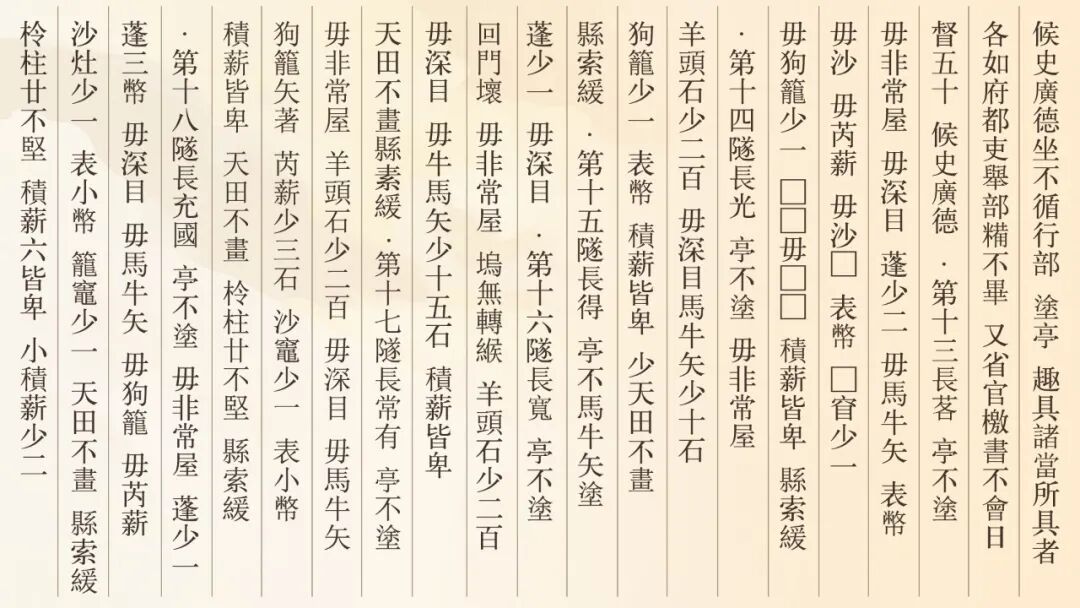 候史廣德坐不循行部 塗亭 趣具諸當所具者
各如府都吏舉部糒不畢 又省官檄書不會日
督五十 候史廣德 ·第十三長荖 亭不塗
毋非常屋 毋深目 蓬少二 毋馬牛矢 表幣
毋沙 毋芮薪 毋沙□ 表幣 □窅少一
毋狗籠少一 □□毋□□ 積薪皆卑 縣索緩
·第十四隧長光 亭不塗 毋非常屋
羊頭石少二百 毋深目馬牛矢少十石
狗籠少一 表幣 積薪皆卑 少天田不畫
縣索緩 ·第十五隧長得 亭不馬牛矢塗
蓬少一 毋深目 ·第十六隧長寬 亭不塗
回門壞 毋非常屋 塢無轉緱 羊頭石少二百
毋深目 毋牛馬矢少十五石 積薪皆卑
天田不畫縣素緩 ·第十七隧長常有 亭不塗
毋非常屋 羊頭石少二百 毋深目 毋馬牛矢
狗籠矢著 芮薪少三石 沙竈少一 表小幣
積薪皆卑 天田不畫 柃柱廿不堅 縣索緩
·第十八隧長充國 亭不塗 毋非常屋 蓬少一
蓬三幣 毋深目 毋馬牛矢 毋狗籠 毋芮薪
沙灶少一 表小幣 籠竈少一 天田不畫 縣索緩
柃柱廿不堅 積薪六皆卑 小積薪少二